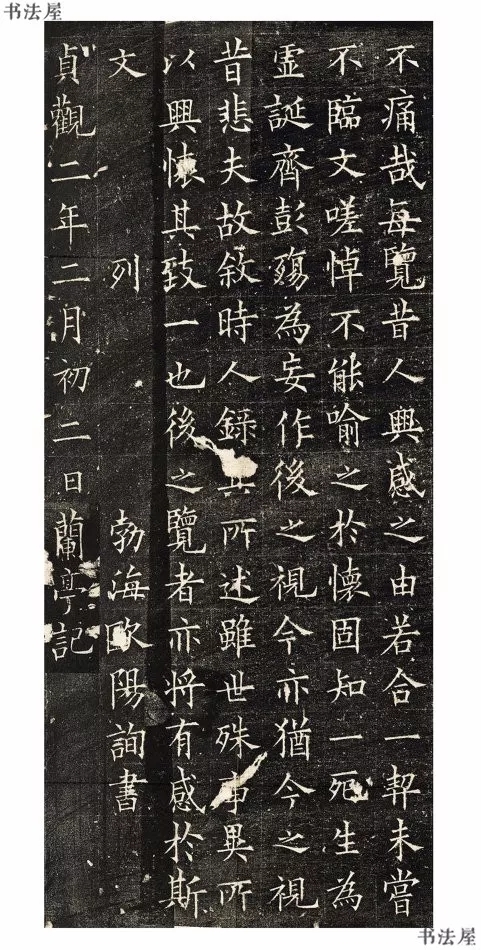 书法屋
不痛哉每覽昔人興感之由若合一契未嘗
不臨文嗟悼不能喻之於懷固知一死生為
虛誕齊彭殤為妄作後之視今亦猶今之視
昔悲夫故敘時人錄其所述雖世殊事異所
以興懷其致一也後之覽者亦將有感於斯
文 列 勃海歐陽詢書
貞觀二年二月初二日蘭亭記
书法屋